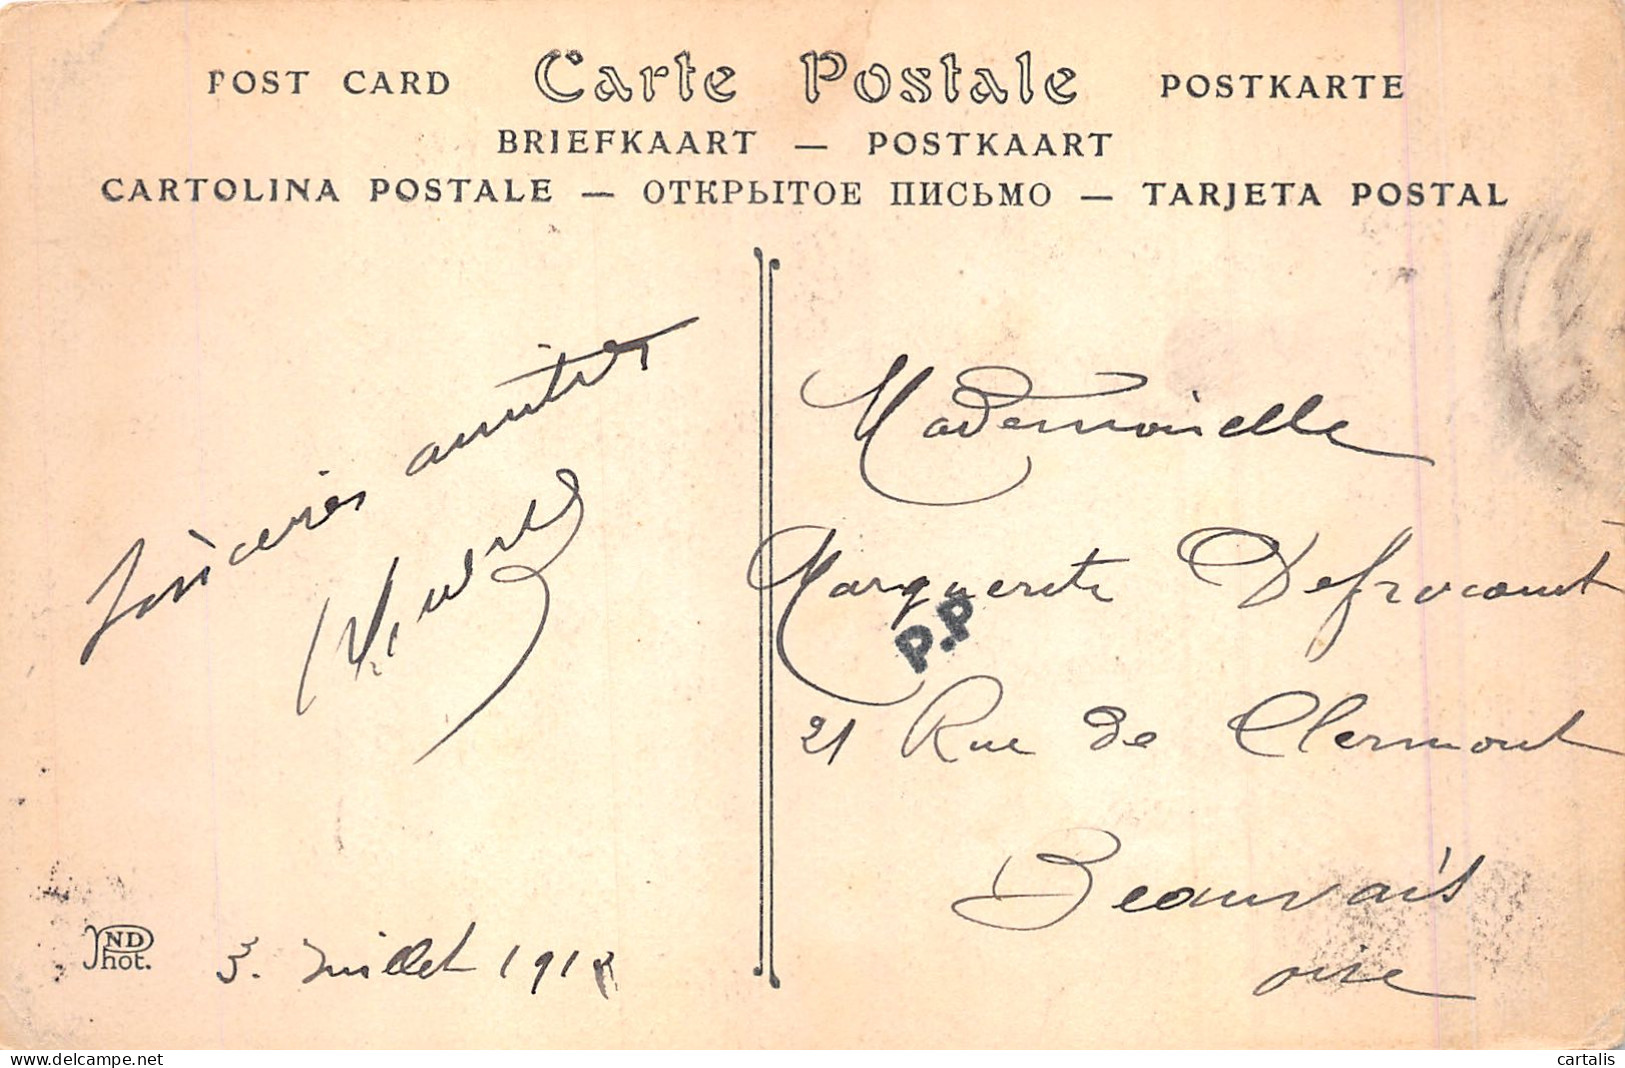 POST CARD Carte Postale POSTKARTE
BRIEFKAART — POSTKAART
CARTOLINA POSTALE — ОТКРЫТОЕ ПИСЬМО — TARJETA POSTAL
Sincères amitiés
3. Juillet 191
ND Phot.
Mademoiselle
Marguerite Defrocourt
P.P
21 Rue de Clermont
Beauvais
oise
www.delcampe.net
cartalis